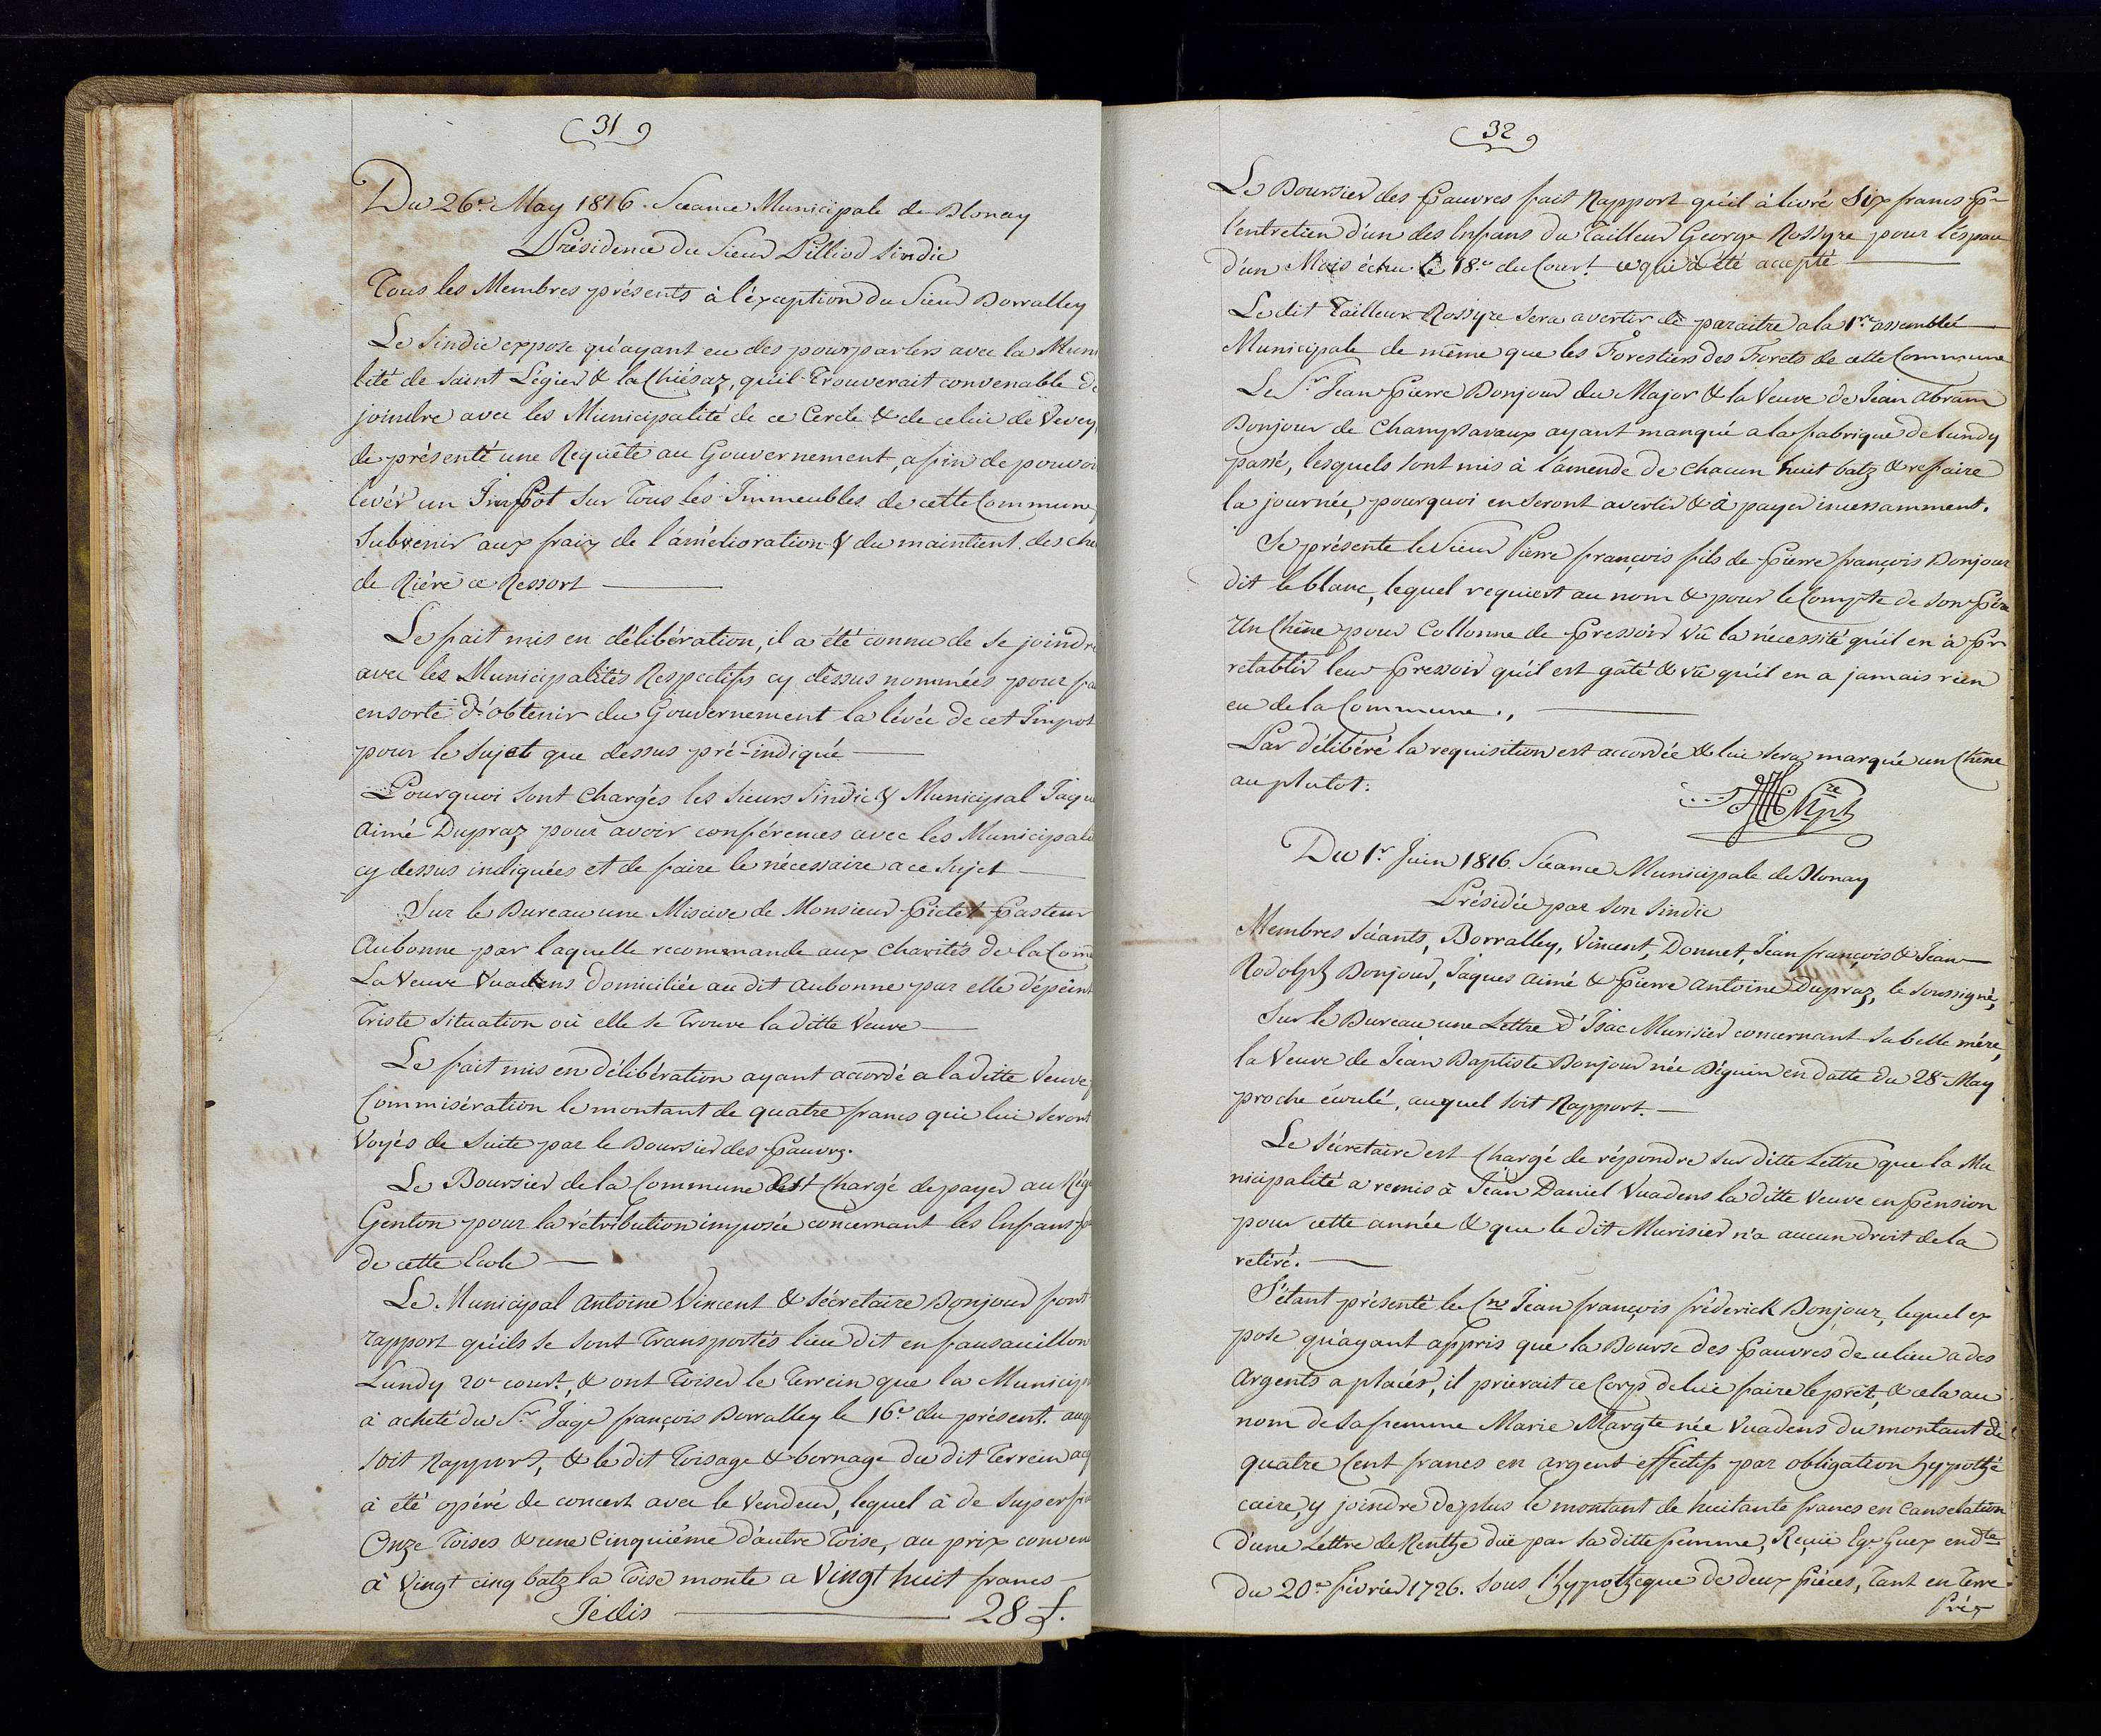 31
Du 26e. May 1816. Séance Municipale de Blonay
Présidence du Sieur Pilliod Sindic
Tous les Membres présents à l'éxception du Sieur Borralley
Le Sindic expose qu'ayant eu des pourparlers avec la Muni
lité de Saint Légier & la Chiésaz, qu'il Trouverait convenable de
joindre avec les Municipalité de ce Cercle & de celui de Vevey,
de présenté une Requête au Gouvernement, afin de pouvoir
levér un Impôt Sur Tous les Immeubles de cette Commune,
Subvenir aux fraiz de l'amélioration & du maintient des che
de Riére ce Ressort
Le fait mis en délibération, il a été connu de se joindre
avec les Municipalités Respectifs cy dessus nommées pour fa
ensorte d'obtenir du Gouvernement la lévée de cet Impot
pour le Sujet que dessus pré-indiqué
Pourquoi sont chargés les Sieurs Sindic & Municipal Jaqu
Aimé Dupraz pour avoir conférences avec les Municipali
cy dessus indiquées et de faire le nécessaire a ce Sujet
Sur le Bureau une Miscive de Monsieur Pictet Pasteur
Aubonne par laquelle recommande aux charités de la Com
La Veuve Vuadens Domiciliée au dit Aubonne par elle dépeint
Triste Situation où elle se Trouve la ditte Veuve
Le fait mis en délibération ayant acordé a la ditte Veuve
Commisération le montant de quatre francs qui lui seront
Voyés de Suite par le Boursier des Pauvrs.
Le Boursier de la Commune est Chargé de payer au Rég
Genton pour la rétribution imposée concernant les Enfans
de cette Ecole
Le Municipal Antoine Vincent & Sécretaire Bonjour font
rapport qu'ils se sont Transportés lieu dit en fausauillon
Lundy 20e court., & ont Toiser le Terrein que la Municip
à acheté du Sr. Jaqe françois Borralley le 16e. du présent. auq
soit Rapport, & le dit Toisage & bornage du dit Terrein acq
à été opéré de concert avec le Vendeur, lequel à de Superfi
Onze Toises & une Cinquiéme d'autre Toise, au prix conven
à Vingt cinq batz la Toise monte a Vingt huit francs
Jedis 28 f.
32
Le Boursier des Pauvres fait Rapport qu'il à livré Six francs Pr
l'entretien d'un des Enfans du Tailleur George Rossyre pour l'espace
d'un Mois échu le 18e. du Court. ce qui à été accepté
Le dit Tailleur Rossyre sera avertir de paraitre a la 1re assemblée
Municipale de même que les Forestiers des Forets de cette Commune
Le Sr. Jean Pierre Bonjour du Major & la Veuve de Jean Abram
Bonjour de Champsavaux ayant manqué a la fabrique de lundy
passé, lesquels sont mis à l'amende de chacun huit batz & refaire
la journée, pourquoi en seront avertis & à payer incessamment.
Se présente le Sieur Pierre françois fils de Pierre françois Bonjour
dit le blanc, lequel requiert au nom & pour le Compte de son Pére
Un Chêne pour Collonne de Pressoir vû la nécessité qu'il en à Pr
retablir leur Pressoir qu'il est gâté & vû qu'il en a jamais rien
eu de la Commune.,
Par délibéré la requisition est accordée & lui sera marqué un Chêne
au plutot.
Du 1r. Juin 1816. Séance Municipale de Blonay
Présidée par son Sindic
Membres Séants, Borralley, Vincent, Donnet, Jean françois & Jean
Rodolph Bonjour, Jaques Aimé & Pierre Antoine Dupraz, le Soussigné,
Sur le Bureau une Lettre d'Isac Murisier concernant sa belle mére,
la Veuve de Jean Baptiste Bonjour née Béguin en datte du 28e May
proche écoulé, auquel soit Rapport.
Le Sécretaire est Chargé de répondre sur ditte Lettre que la Mu
nicipalité a remis à Jean Daniel Vuadens la ditte Veuve en Pension
pour cette année & que le dit Murisier n'a aucun droit de la
retiré.
S'étant présenté le Jean françois fréderick Bonjour, lequel ex
pose qu'ayant appris que la Bourse des Pauvres de ce lieu a des
Argents a placér, il prierait ce Corp de lui faire le prêt, & cela au
nom de sa femme Marie Margte née Vuadens du montant de
quatre Cent francs en argent effectifs par obligation hypothé
caire, y joindre de plus le montant de huitante francs en Canselation
d'une Lettre de Renthe düe par sa ditte femme, Reçüe Egr. Guex endte
du 20e février 1726. Sous l'hypotheque de deux Piéces, Tant en Terre
Préz